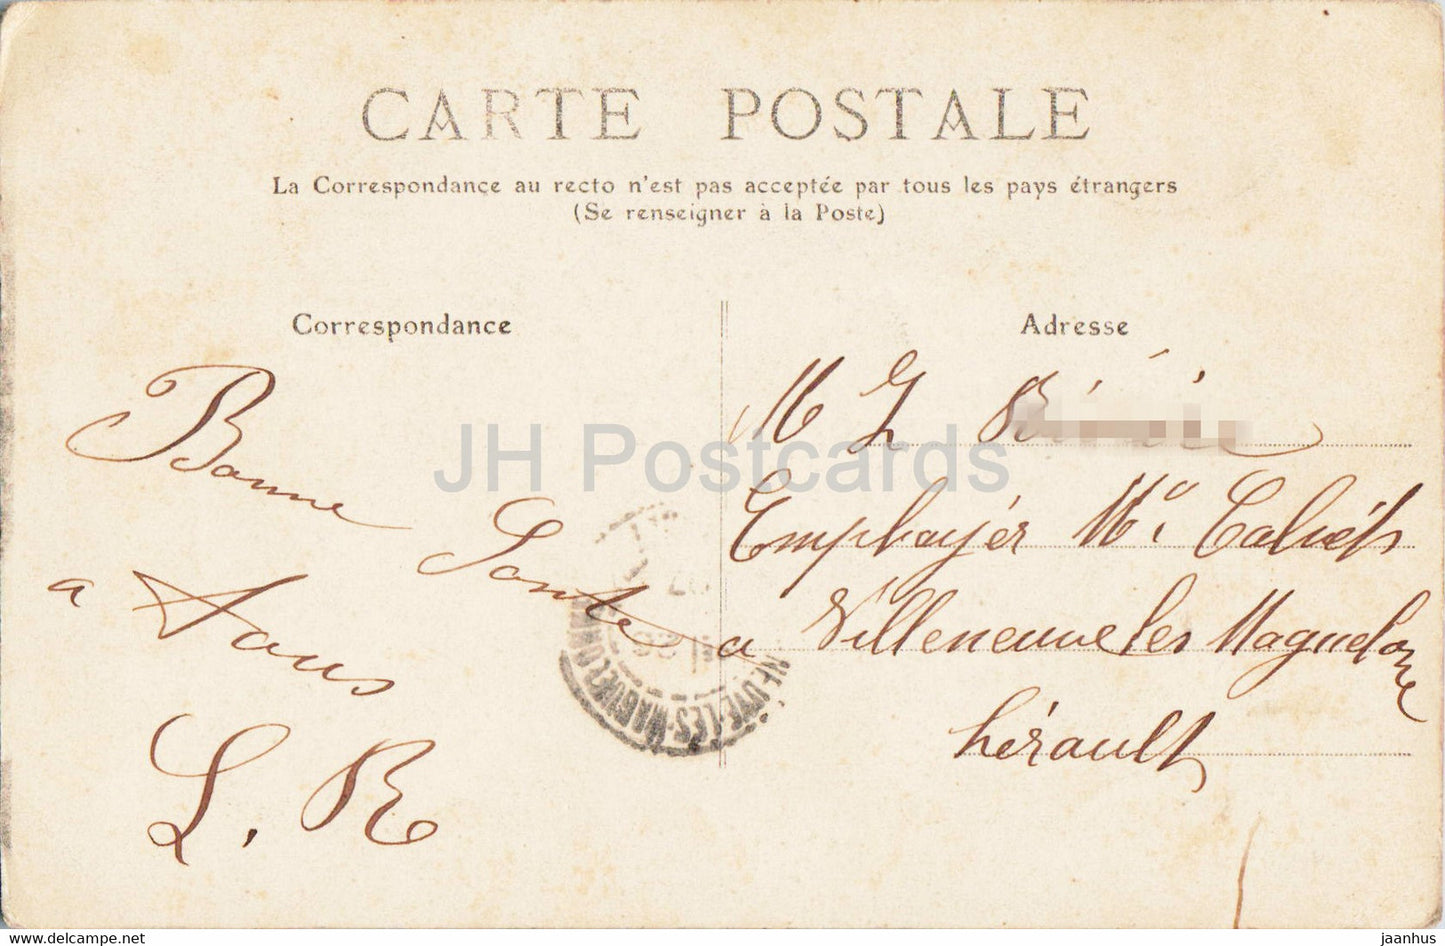 CARTE POSTALE
La Correspondance au recto n'est pas acceptée par tous les pays étrangers
(Se renseigner à la Poste)
Correspondance
Adresse
Bonne Sante
a Tous
L. R
M L
Employér Mn.
a Villeneuve les Maguelone
hérault
NEUVE-LES-MAGUELONNE
JH Postcards
www.delcampe.net
jaanhus